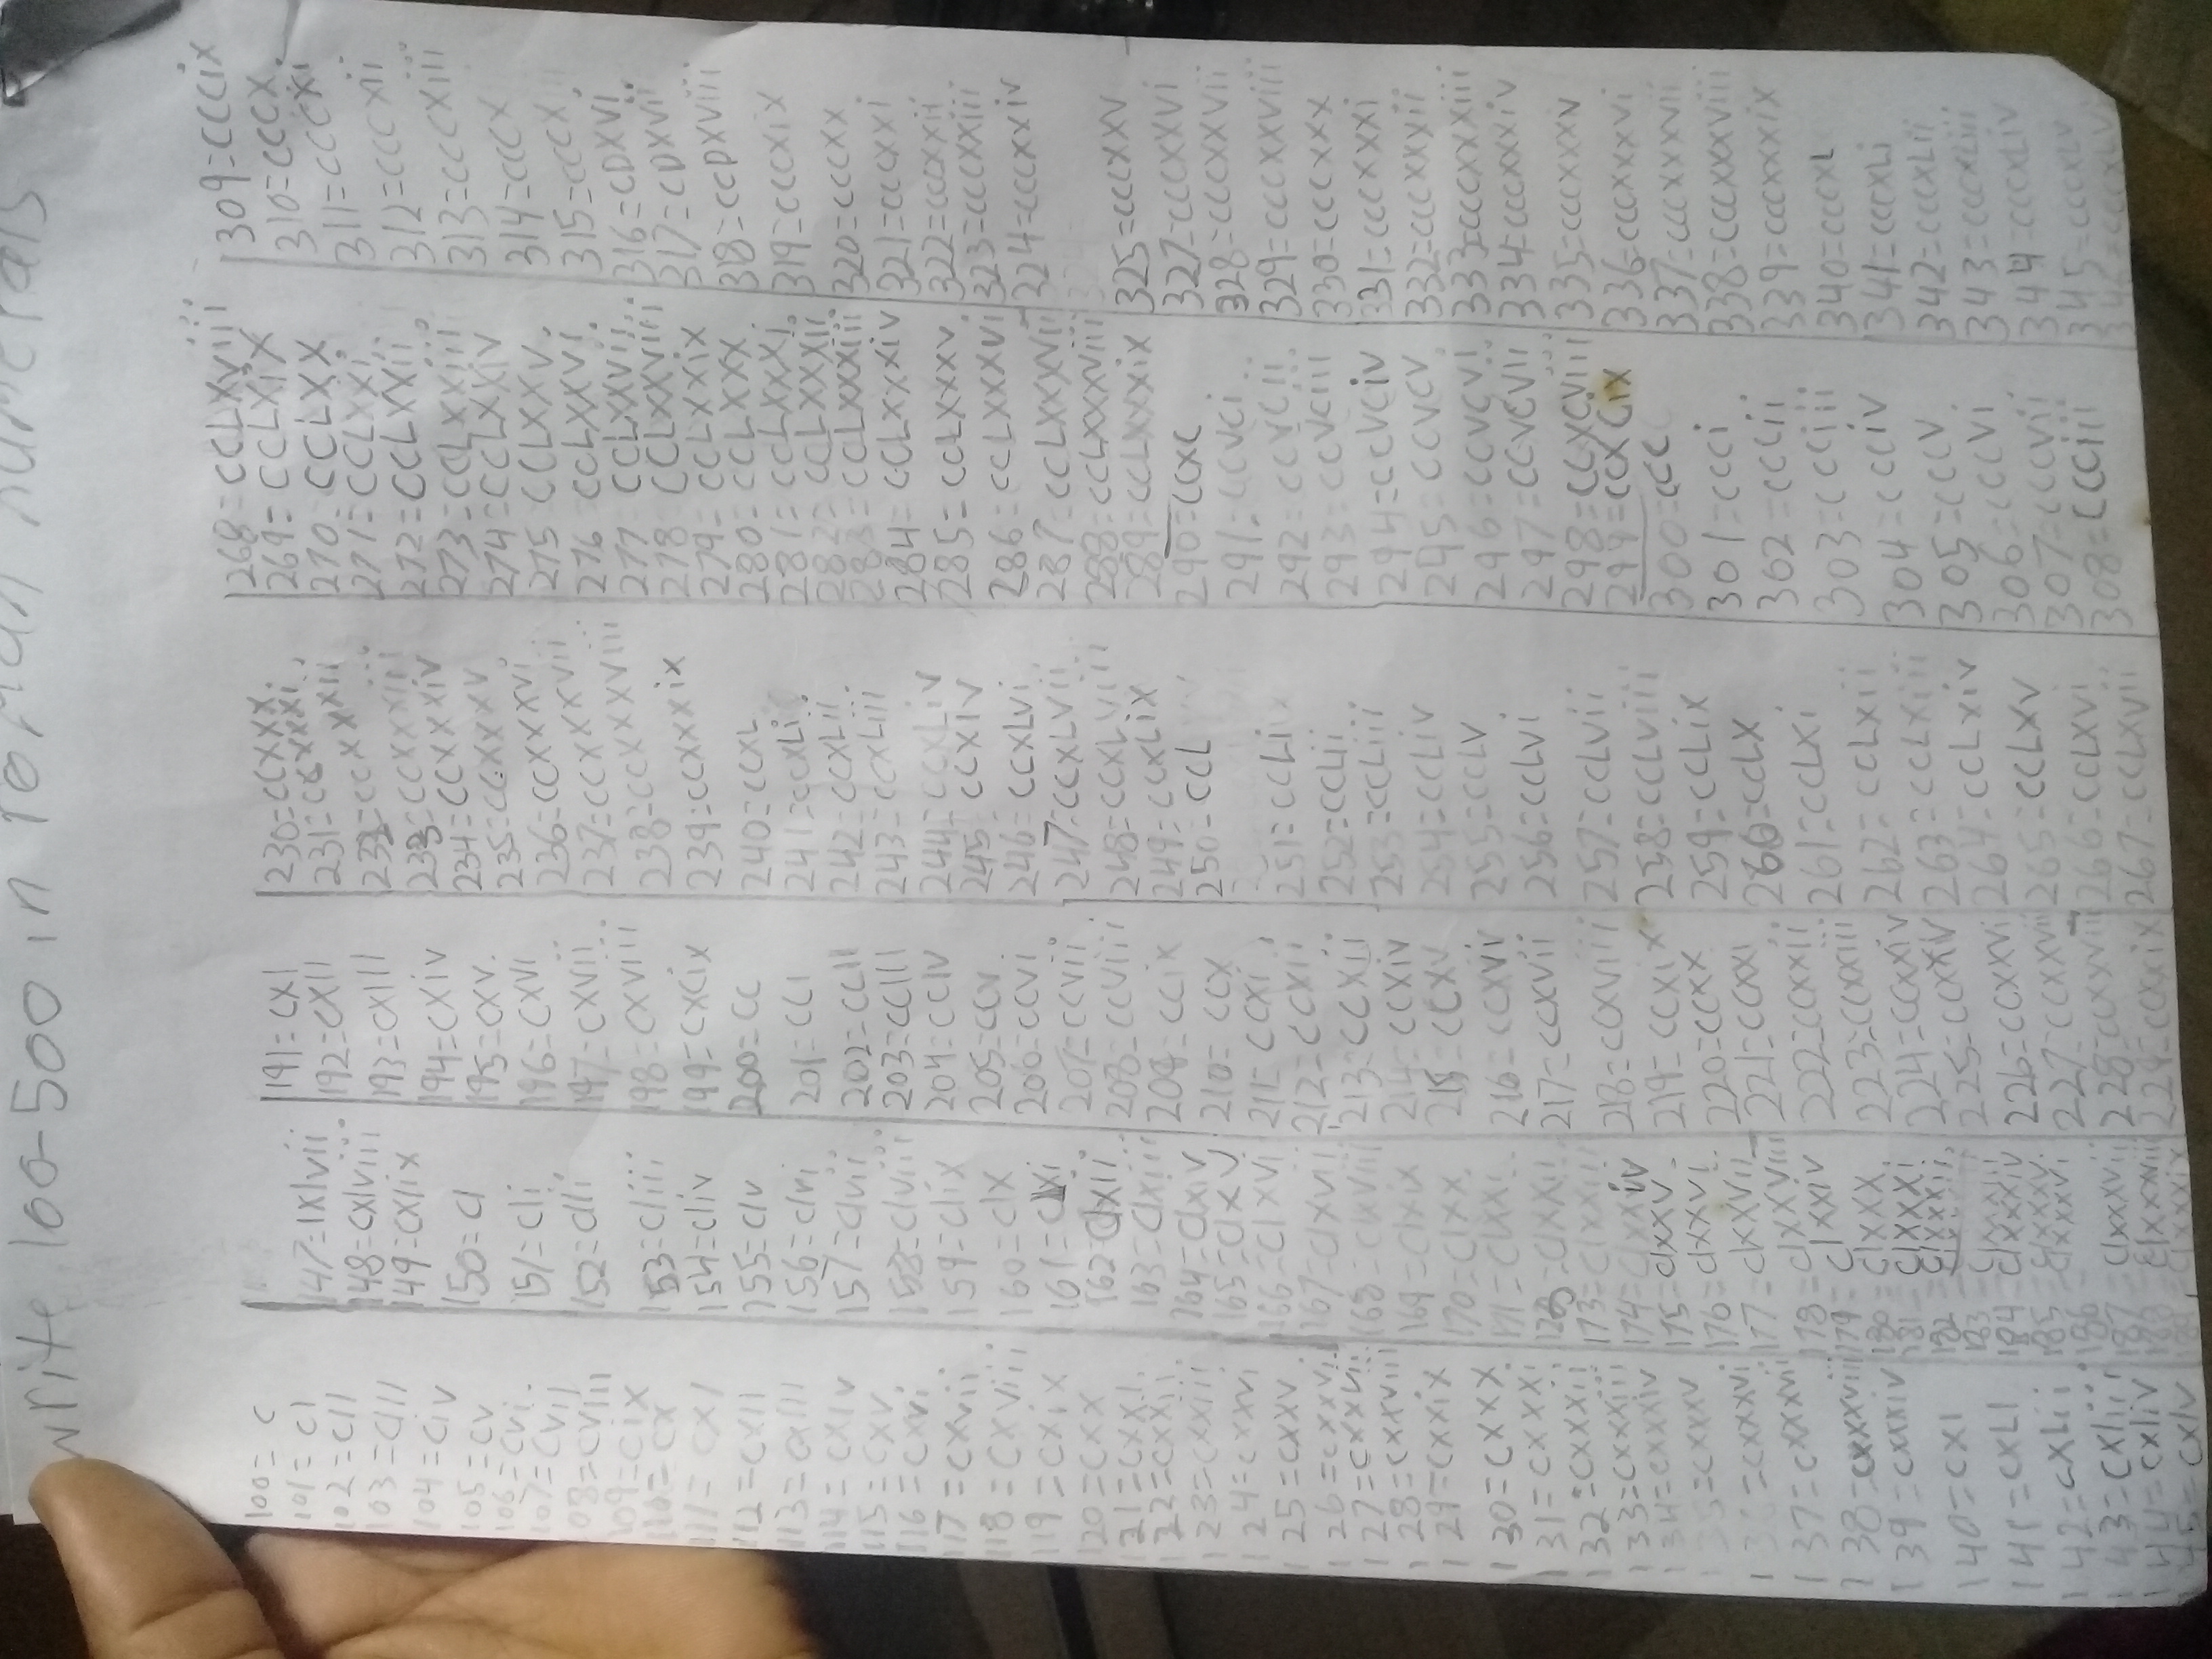 write 100-500 in roman numerals
100=c
101=cI
102=cII
103=cIII
104=civ
105=cv
106=cvi
107=cvII
108=cvIII
109=cix
110=cx
111=cxI
112=cxII
113=cxIII
114=cxiv
115=cxv
116=cxvi
117=cxvii
118=cxviii
119=cxix
120=cxx
121=cxxi
122=cxxii
123=cxxiii
124=cxxvi
125=cxxv
126=cxxvi
127=cxxvii
128=cxxviii
129=cxxix
130=cxxx
131=cxxxi
132=cxxxii
133=cxxxiii
134=cxxxiv
=cxxxv
=cxxxvi
137=cxxxvi
138=cxxxviii
139=cxxxiv
140=cxl
141=cxLI
142=cxLii
143=cxliii
144=cxliv
145=cxlv
147=lxlvii
148=cxlviii
149=cxlix
150=cl
151=cli
152=clii
153=cliii
154=cliv
155=clv
156=clvi
157=clvii
158=clviii
159=clix
160=clx
161=clxi
162=clxii
163=clxiii
164=clxiv
165=clxv
166=clxvi
167=clxvii
168=clxviii
169=clxix
170=clxx
171=clxxi
173=clxxiii
174=clxxiv
175=clxxv
176=clxxvi
177=clxxvii
178=clxxviii
179=clxxiv
180=clxxx
181=clxxxi
182=clxxxii
183=clxxxiii
184=clxxxiv
185=clxxxvi
186=
187=clxxxvii
188=clxxxviii
191=cxI
192=cxII
193=cxIII
194=cxiv
195=cxv
196=cxvi
197=cxvii
198=cxviii
199=cxcix
200=cc
201=ccI
202=ccII
203=ccIII
204=ccIv
205=ccv
206=ccvi
207=ccvii
208=ccviii
209=ccix
210=ccx
211=ccxi
212=ccxii
213=ccxiii
214=ccxiv
215=ccxv
216=ccxvi
217=ccxvii
218=ccxviii
219=ccxix
220=ccxx
221=ccxxi
222=ccxxii
223=ccxxiii
224=ccxxiv
225=ccxxiv
226=ccxxvi
227=ccxxvii
228=ccxxviii
229=ccxxix
230=ccxxx
231=ccxxxi
232=ccxxxii
233=ccxxxiii
234=ccxxxiv
235=ccxxxv
236=ccxxxvi
237=ccxxxvii
238=ccxxxviii
239=ccxxxix
240=ccxL
241=ccxLi
242=ccxLii
243=ccxLiii
244=ccxLiv
245=ccxiv
246=ccxLvi
247=ccxLvii
248=ccxLviii
249=ccxLix
250=ccL
251=ccLi
252=ccLii
253=ccLiii
254=ccLiv
255=ccLv
256=ccLvi
257=ccLvii
258=ccLviii
259=ccLix
260=ccLx
261=ccLxi
262=ccLxii
263=ccLxiii
264=ccLxiv
265=ccLxv
266=ccLxvi
267=ccLxvii
268=ccLxviii
269=ccLxix
270=ccLxx
271=ccLxxi
272=ccLxxii
273=ccLxxiii
274=ccLxxiv
275=ccLxxv
276=ccLxxvi
277=ccLxxvii
278=ccLxxviii
279=ccLxxix
280=ccLxxx
281=ccLxxxi
282=ccLxxxii
283=ccLxxxiii
284=ccLxxxiv
285=ccLxxxv
286=ccLxxxvi
287=ccLxxxvii
288=ccLxxxviii
289=ccLxxxix
290=ccxc
291=ccvci
292=ccvcii
293=ccvciii
294=ccvciv
295=ccvcv
296=ccvcvi
297=ccvcvii
298=ccxcviii
299=ccxcix
300=ccc
301=ccci
302=cccii
303=ccciii
304=ccciv
305=cccv
306=cccvi
307=cccvii
308=ccciii
309=cccix
310=cccx
311=cccxi
312=cccxii
313=cccxiii
314=cccx
315=cccx
316=cDxvi
317=cDxvii
318=ccDxviii
319=cccxix
320=cccxx
321=cccxxi
322=cccxxii
323=cccxxiii
324=cccxxiv
325=cccxxv
327=cccxxvi
328=cccxxvii
329=cccxxviii
330=cccxxx
331=cccxxxi
332=cccxxxii
333=cccxxxiii
334=cccxxxiv
335=cccxxxv
336=cccxxxvi
337=cccxxxvii
338=cccxxxviii
339=cccxxxix
340=cccxL
341=cccxLi
342=cccxLii
343=cccxLiii
344=cccxLiv
345=cccxLv